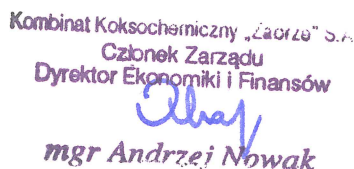 Kombinat Koksochemiczny „Zabrze" S.A.
Członek Zarządu
Dyrektor Ekonomiki i Finansów
mgr Andrzej Nowak